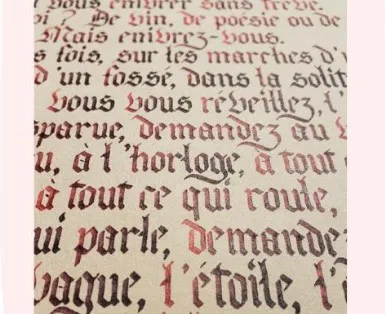 vous enivrer sans trêve.
? De vin, de poésie ou de
Mais enivrez-vous.
s fois, sur les marches d'
d'un fossé, dans la solit
vous vous réveillez, l'
sparue, demandez au v
u, à l'horloge, à tout c
à tout ce qui roule,
ui parle, demande
vague, l'étoile, l'